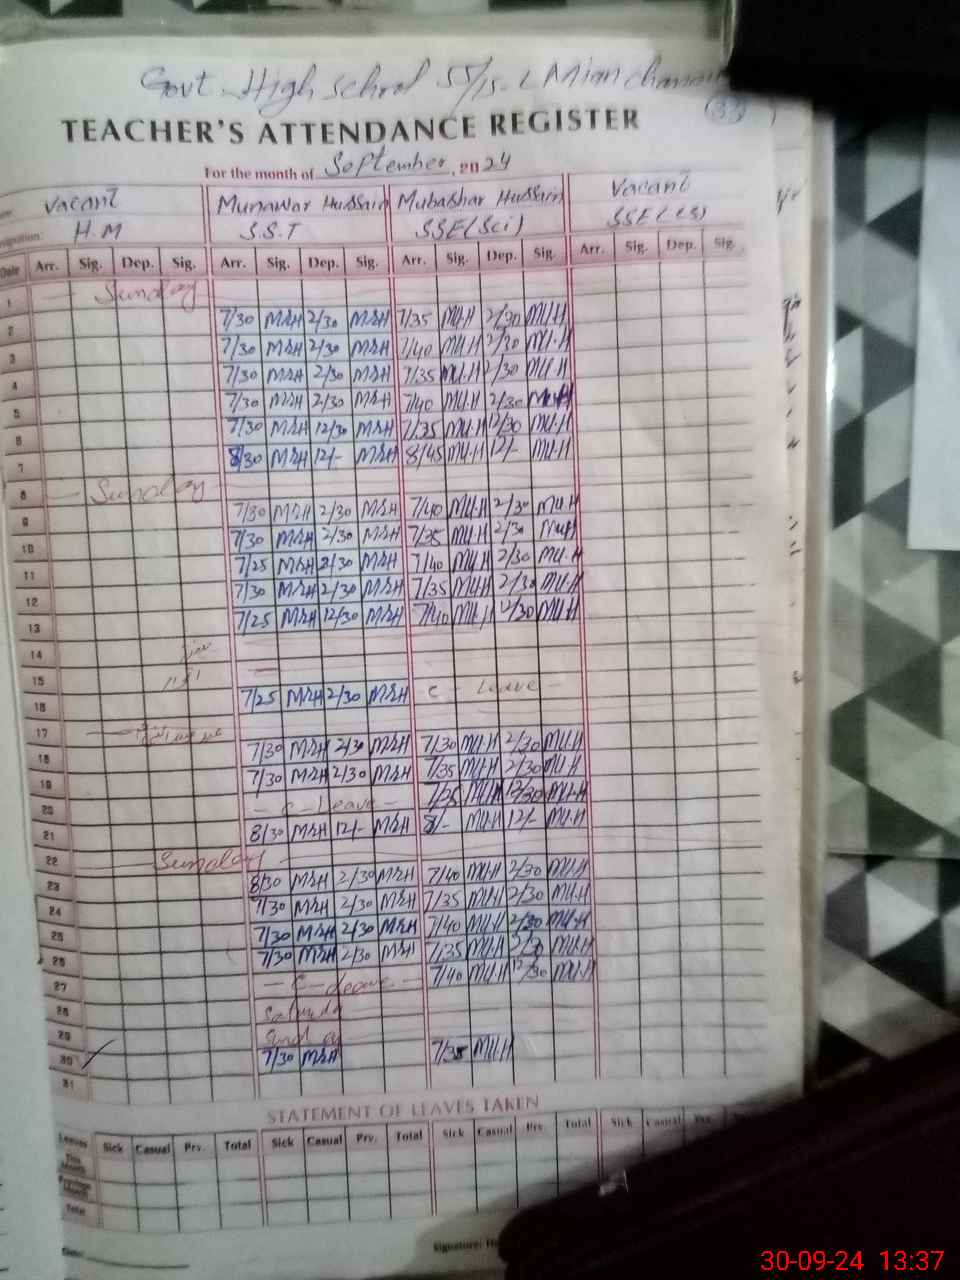 Govt. High School 55/15-L Mian Channu
TEACHER'S ATTENDANCE REGISTER
33
For the month of September, 2024
Vacant Munawar Hussain Mubashar Hussain Vacant
H.M S.S.T SSE(Sci) SSE(
Date Arr. Sig. Dep. Sig. Arr. Sig. Dep. Sig. Arr. Sig. Dep. Sig. Arr. Sig. Dep. Sig.
1 Sunday
2 7/30 MSH 2/30 MSH 7/35 MU.H 2/30 MU.H
3 7/30 MSH 2/30 MSH 7/40 MU.H 2/30 MU.H
4 7/30 MSH 2/30 MSH 7/35 MU.H 2/30 MU.H
5 7/30 MSH 2/30 MSH 7/40 MU.H 2/30 MU.H
6 7/30 MSH 12/30 MSH 7/35 MU.H 12/30 MU.H
7 8/30 MSH 12/- MSH 8/45 MU.H 12/- MU.H
8 Sunday
9 7/30 MSH 2/30 MSH 7/40 MU.H 2/30 MU.H
10 7/30 MSH 2/30 MSH 7/35 MU.H 2/30 MU.H
11 7/25 MSH 2/30 MSH 7/40 MU.H 2/30 MU.H
12 7/30 MSH 2/30 MSH 7/35 MU.H 2/30 MU.H
13 7/25 MSH 12/30 MSH 7/40 MU.H 12/30 MU.H
14
15
16 7/25 MSH 2/30 MSH C - Leave -
17
18 7/30 MSH 2/30 MSH 7/30 MU.H 2/30 MU.H
19 7/30 MSH 2/30 MSH 7/35 MU.H 2/30 MU.H
20 - C - Leave - 7/35 MU.H 12/30 MU.H
21 8/30 MSH 12/- MSH 8/- MU.H 12/- MU.H
22 Sunday
23 8/30 MSH 2/30 MSH 7/40 MU.H 2/30 MU.H
24 7/30 MSH 2/30 MSH 7/35 MU.H 2/30 MU.H
25 7/30 MSH 2/30 MSH 7/40 MU.H 2/30 MU.H
26 7/30 MSH 2/30 MSH 7/35 MU.H 2/30 MU.H
27 - C - Leave - 7/40 MU.H 12/30 MU.H
28 Saturda
29 Sunday
30 7/30 MSH 7/35 MU.H
31
STATEMENT OF LEAVES TAKEN
Leaves Sick Casual Prv. Total Sick Casual Prv. Total Sick Casual Prv. Total Sick Casual Prv.
This Month
Total
Date:
Signature:
30-09-24 13:37